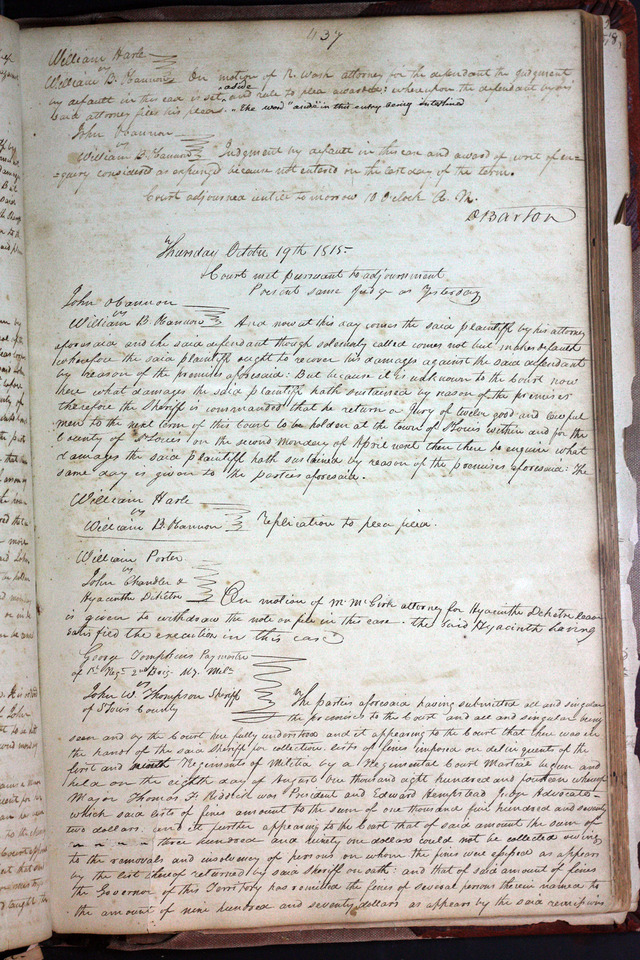 437
William Harle
vs
William B. OBannon } On motion of R. Wash attorney for the defendant the Judgment
by default in this case is set aside and rule to plea awarded: whereupon the defendant by his
said attorney files his plea. "the word "aside" in this entry being interlined
John OBannon
vs
William B. OBannon } Judgment by default in this case and award of writ of en=
=quiry considered as expunged because not entered on the last day of the term.
Court adjourned until tomorrow 10 Oclock A. M.
D Barton
Thursday Octobr 19th 1815
Court met pursuant to adjournment
Present same Judge as Yesterday
John OBannon
vs
William B. OBannon } And now at this day comes the said plaintiff by his attorney
aforesaid and the said defendant though solemnly called comes not but makes default
wherefore the said plaintiff ought to recover his damages against the said defendant
by reason of the premises aforesaid: But because it is unknown to the Court now
here what damages the said plaintiff hath sustained by reason of the premises
therefore the Sheriff is commanded that he return a Jury of twelve good and lawful
men to the next term of this Court to be holden at the town of St Louis within and for the
County of St Louis on the second Monday of April next then there to enquire what
damages the said plaintiff hath sustained by reason of the premises aforesaid: The
same day is given to the parties aforesaid.
William Harle
vs
William B. OBannon } Replication to plea filed.
William Porter
vs
John Chandler &
Hyacinthe Dehetre } On motion of M. McGirk attorney for Hyacinthe Dehetre leave
is given to withdraw the note on file in this case. the said Hyacinth having
satisfied the execution in this case
George Tompkins Paymaster
of 1st Regt 2nd Brig. M.T. Mila
vs
John W. Thompson Sheriff
of St Louis County } The parties aforesaid having submitted all and singular
the premises to the Court and all and singular being
seen and by the Court here fully understood and it appearing to the Court that there was in
the hands of the said Sheriff for collection, lists of fines imposed on delinquents of the
first and ninth Regiments of Militia by a Regimental Court Martial begun and
held on the eighth day of August One thousand eight hundred and fourteen whereof
Major Thomas F. Riddick was President and Edward Hempstead Judge Advocate
which said lists of fines amount to the sum of one thousand five hundred and seventy
two dollars. and it further appearing to the Court that of said amount the sum of
three hundred and ninety one dollars could not be collected owing
to the removals and insolvency of persons on whom the fines were assessed as appears
by the list thereof returned by said Sheriff on oath: and that of said amount of fines
the Governor of this Territory has remitted the fines of several persons therein named to
the amount of nine hundred and seventy dollars as appears by the said remissions